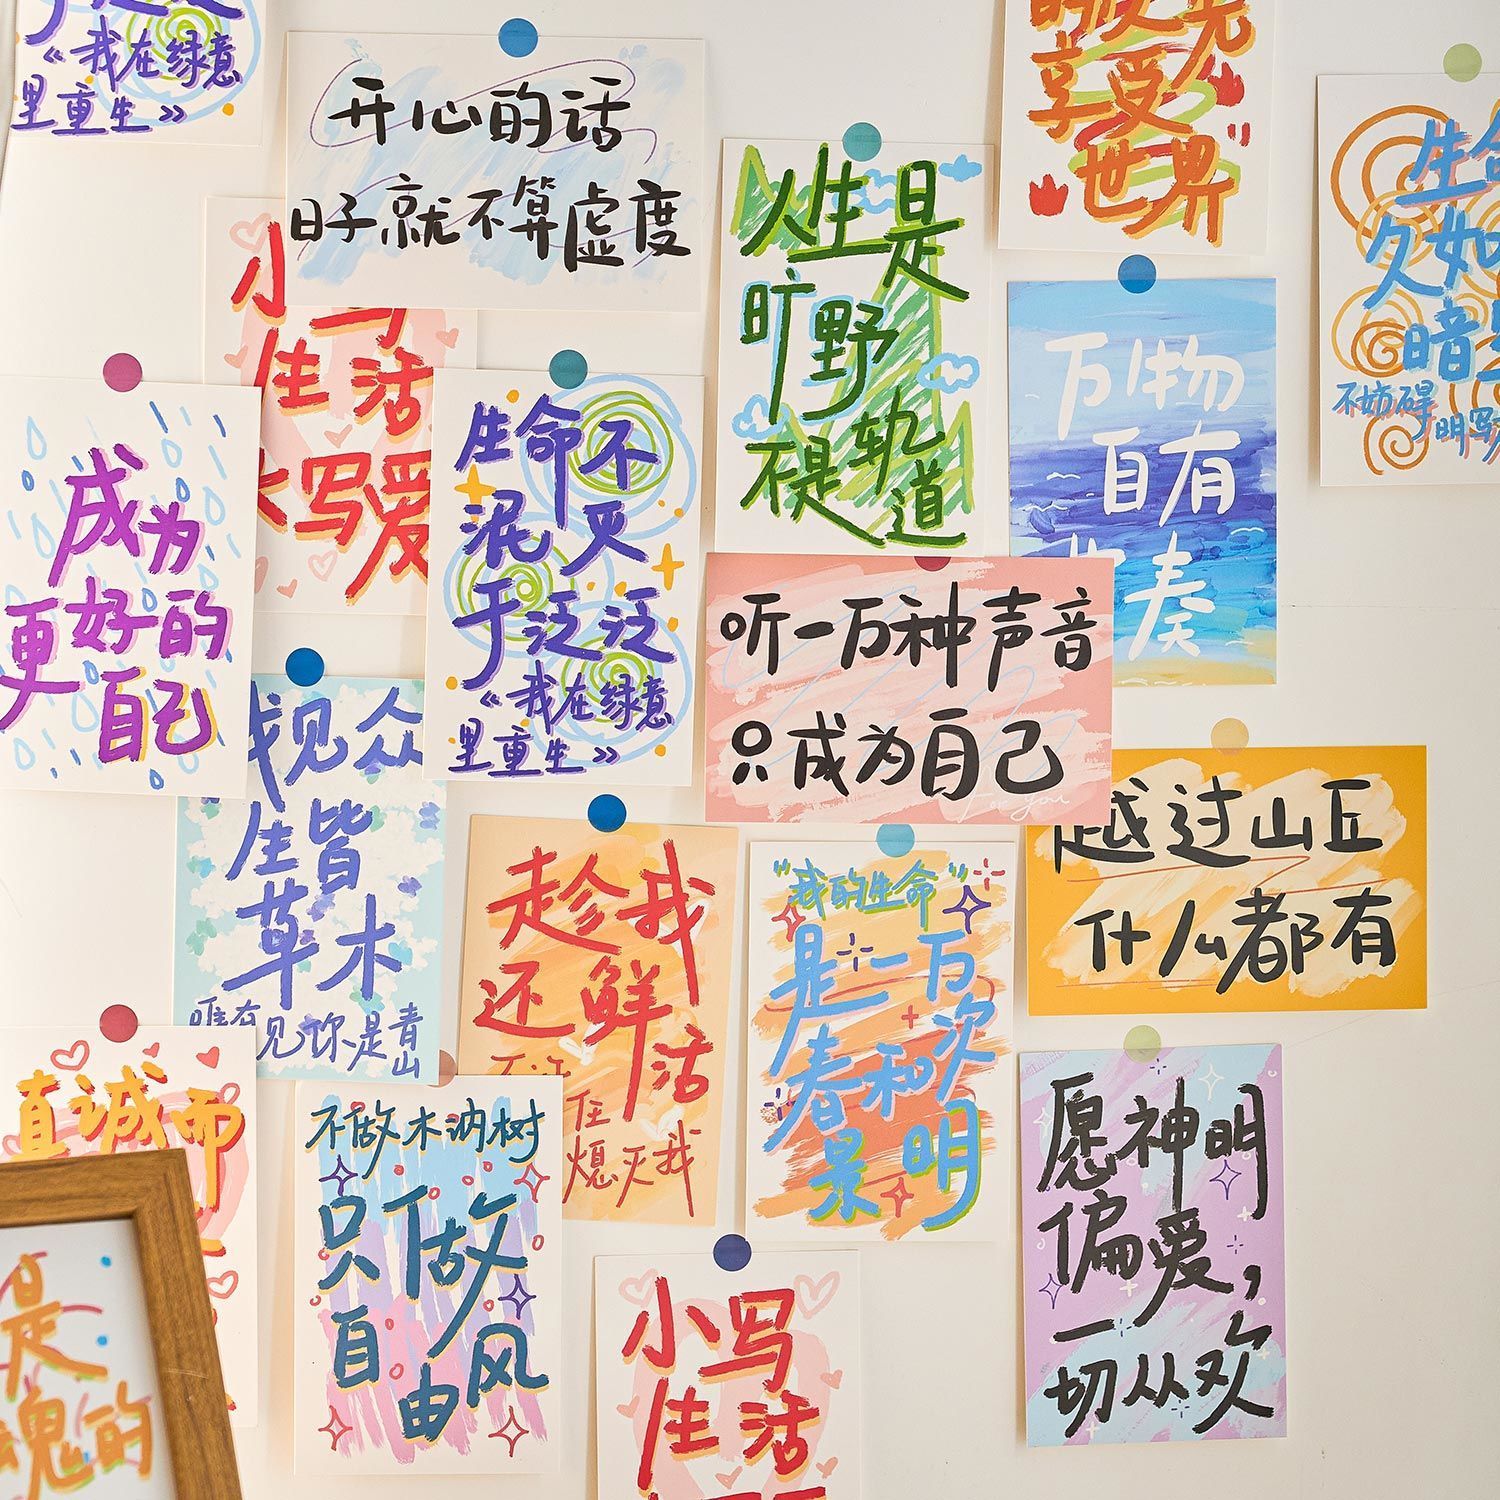 《我在绿意
里重生》
开心的话
日子就不算虚度
小写
生活
大写爱
人生是
旷野
不是轨
道
享受
世界
生命
久如
暗
不妨碍
明
万物
自有
奏
成为
更好的
自己
生命不
泯灭
于泛泛
《我在绿意
里重生》
听一万种声音
只成为自己
for you
越过山丘
什么都有
我见众
生皆
草木
唯有见你是青
山
趁我
还鲜
活
住
熄灭我
"我的生命"
是一万
次
春和
景明
愿神明
偏爱，
一切从欢
真诚而
不做木讷树
只做
自由风
小写
生活
是
魂的